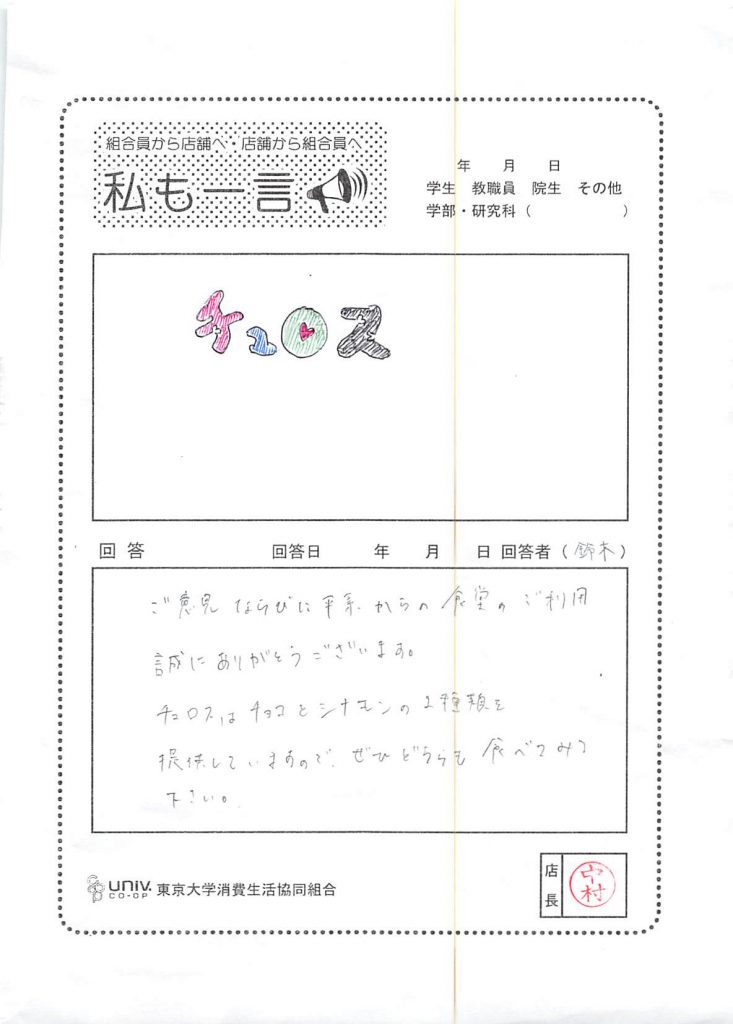 組合員から店舗へ・店舗から組合員へ
私も一言
年 月 日
学生 教職員 院生 その他
学部・研究科( )
チュロス
回答 回答日 年 月 日 回答者(鈴木)
ご意見ならびに平素からの食堂のご利用
誠にありがとうございます。
チュロスはチョコとシナモンの2種類を
提供していますので、ぜひどちらも食べてみて
下さい。
univ. CO-OP 東京大学消費生活協同組合
店長 中村